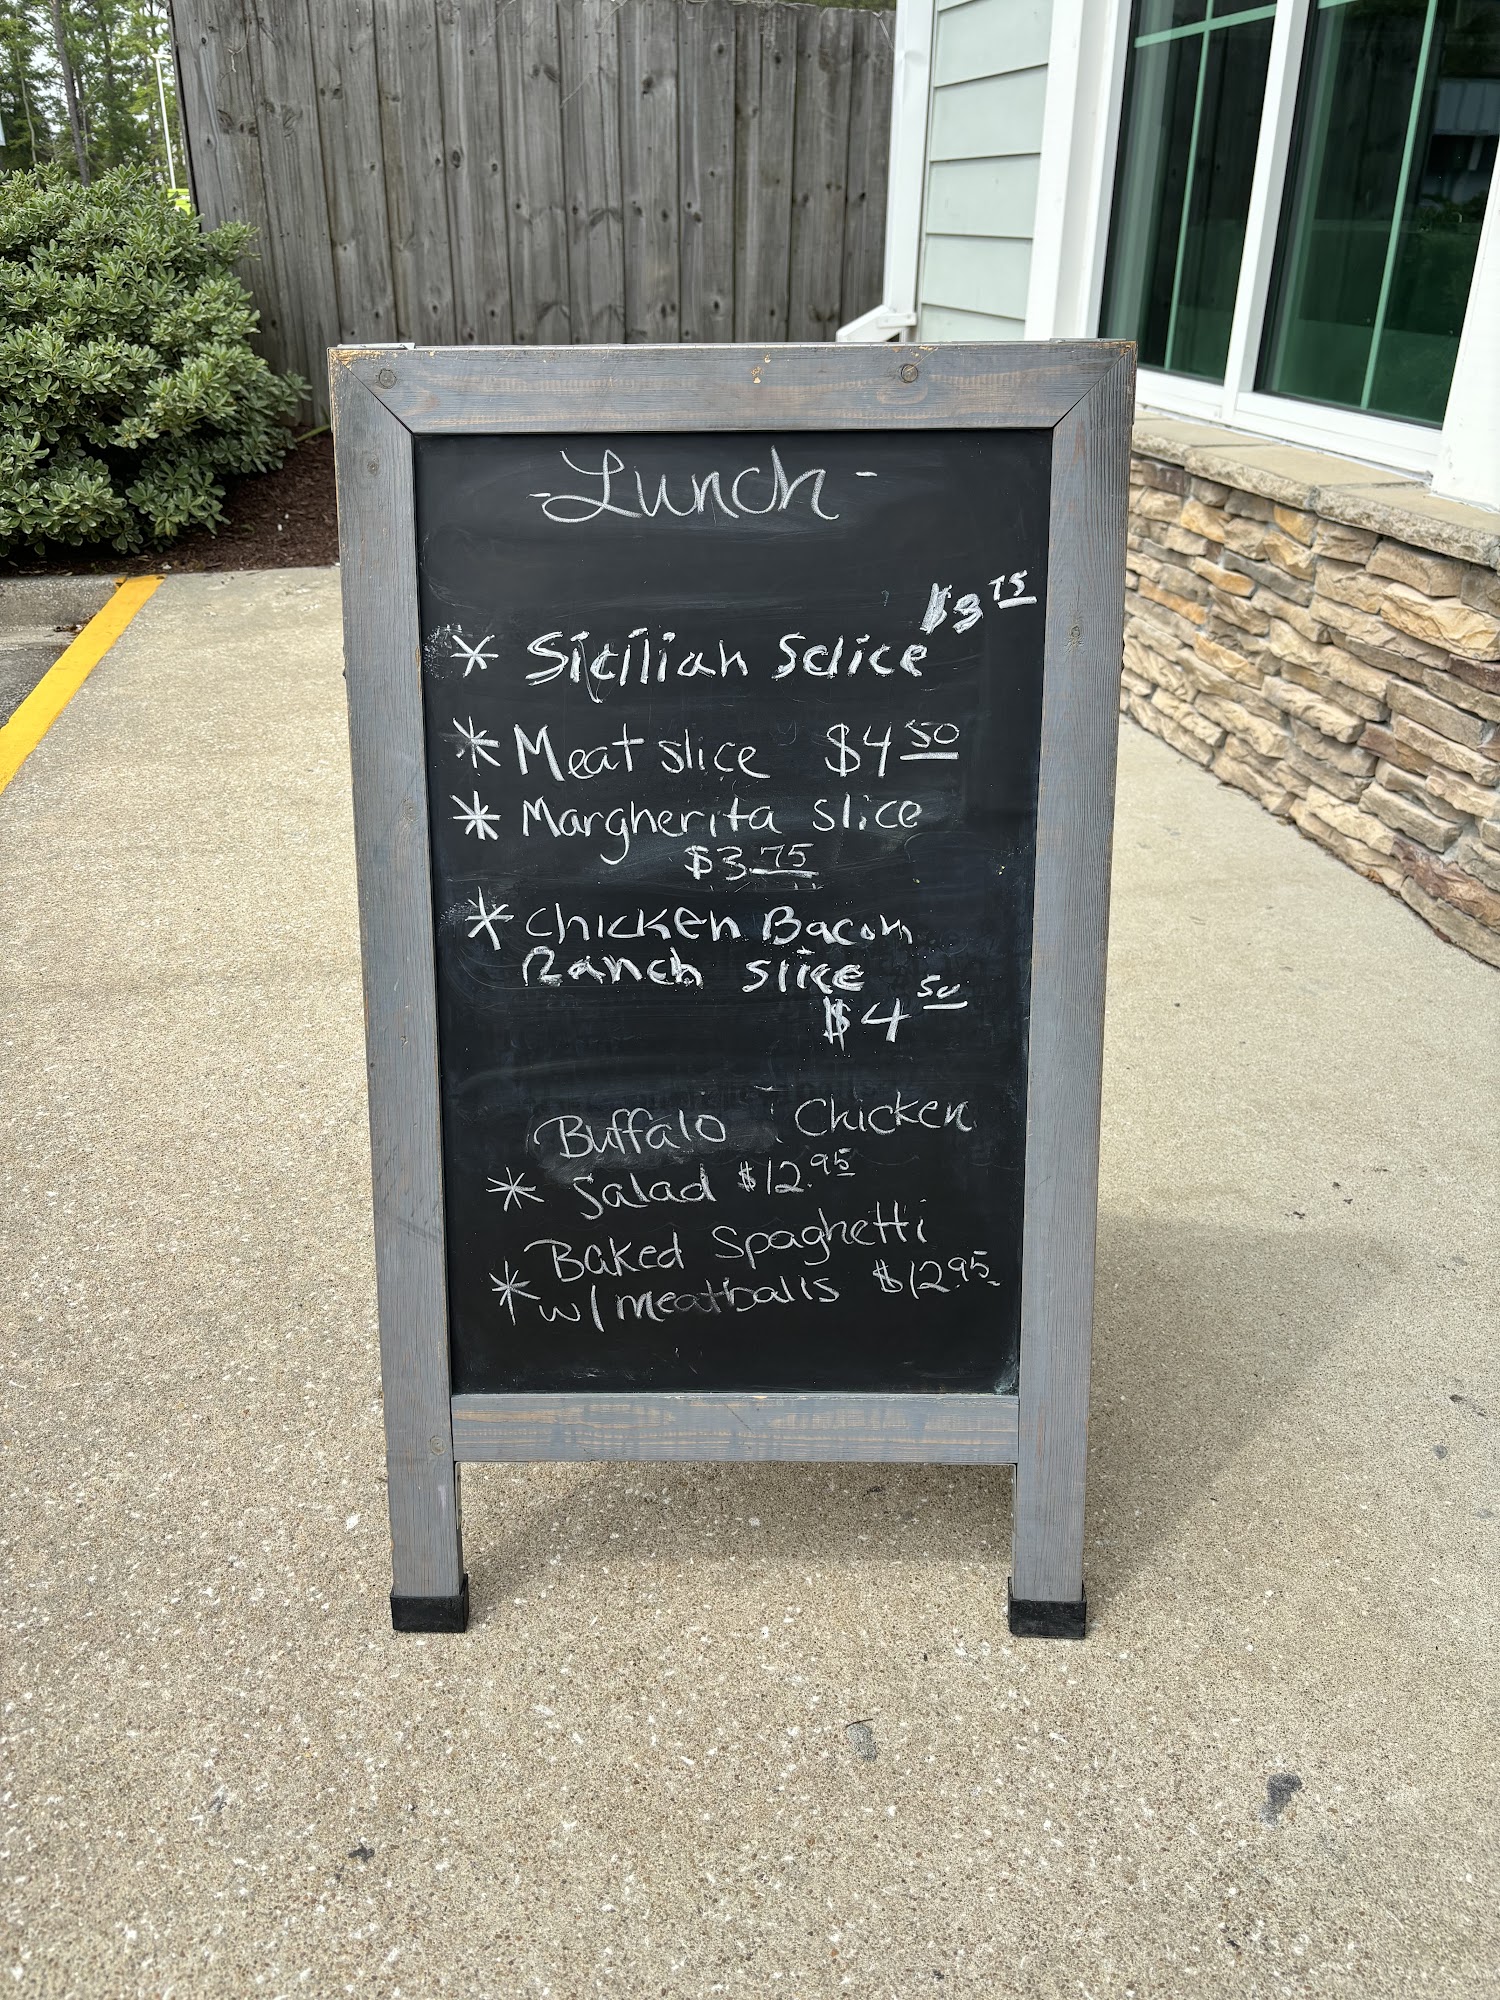 -Lunch-
$3 75
* Sicilian Sclice
* Meat slice $4 50
* Margherita slice
$3 75
* Chicken Bacon
Ranch slice
$4 50
Buffalo Chicken
* Salad $12.95
Baked Spaghetti
* w/ meatballs $12.95